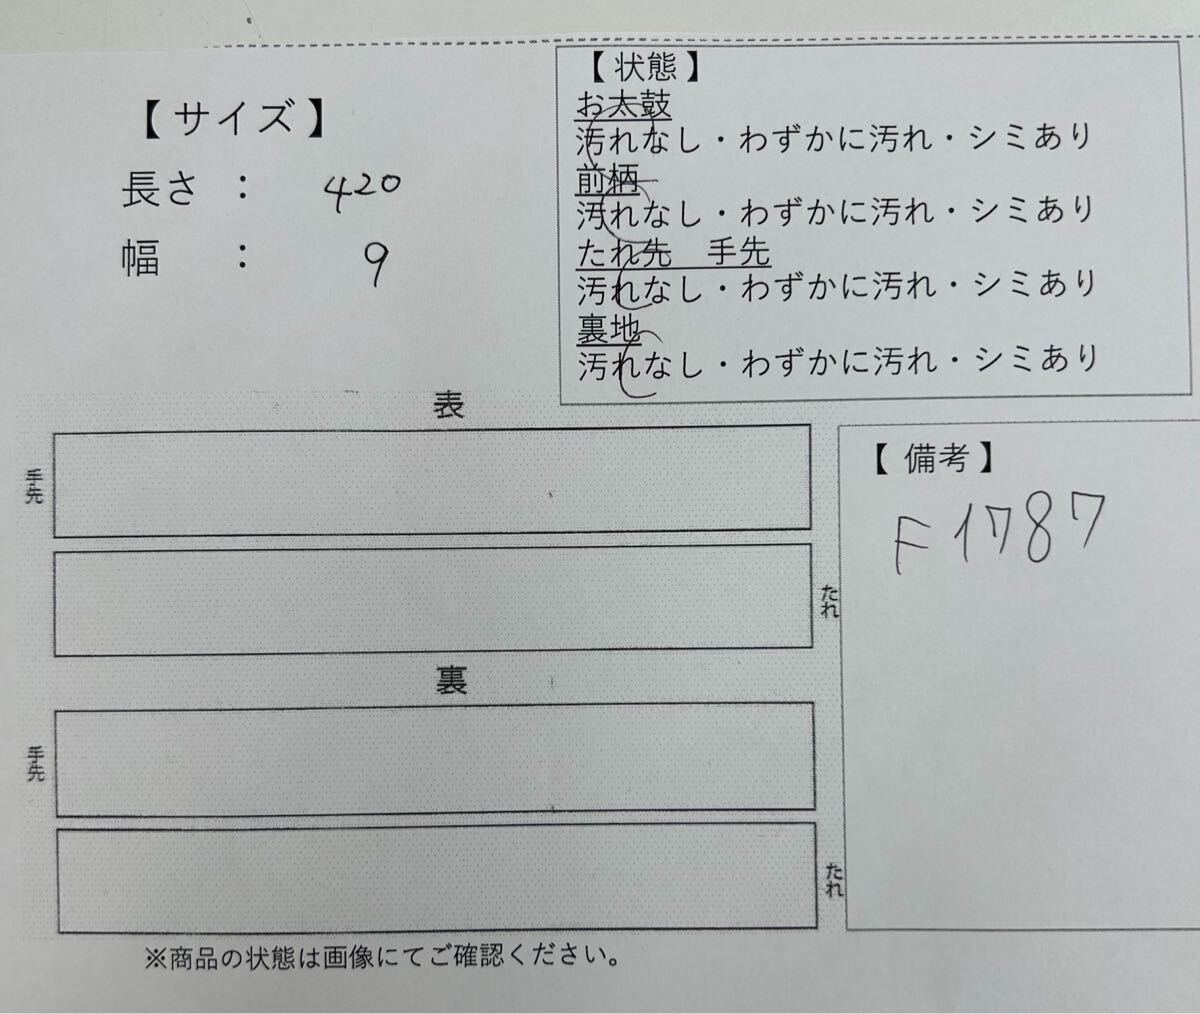 【サイズ】
長さ : 420
幅 : 9
【状態】
お太鼓
汚れなし・わずかに汚れ・シミあり
前柄
汚れなし・わずかに汚れ・シミあり
たれ先 手先
汚れなし・わずかに汚れ・シミあり
裏地
汚れなし・わずかに汚れ・シミあり
表
手先
たれ
裏
手先
たれ
【備考】
F1787
※商品の状態は画像にてご確認ください。